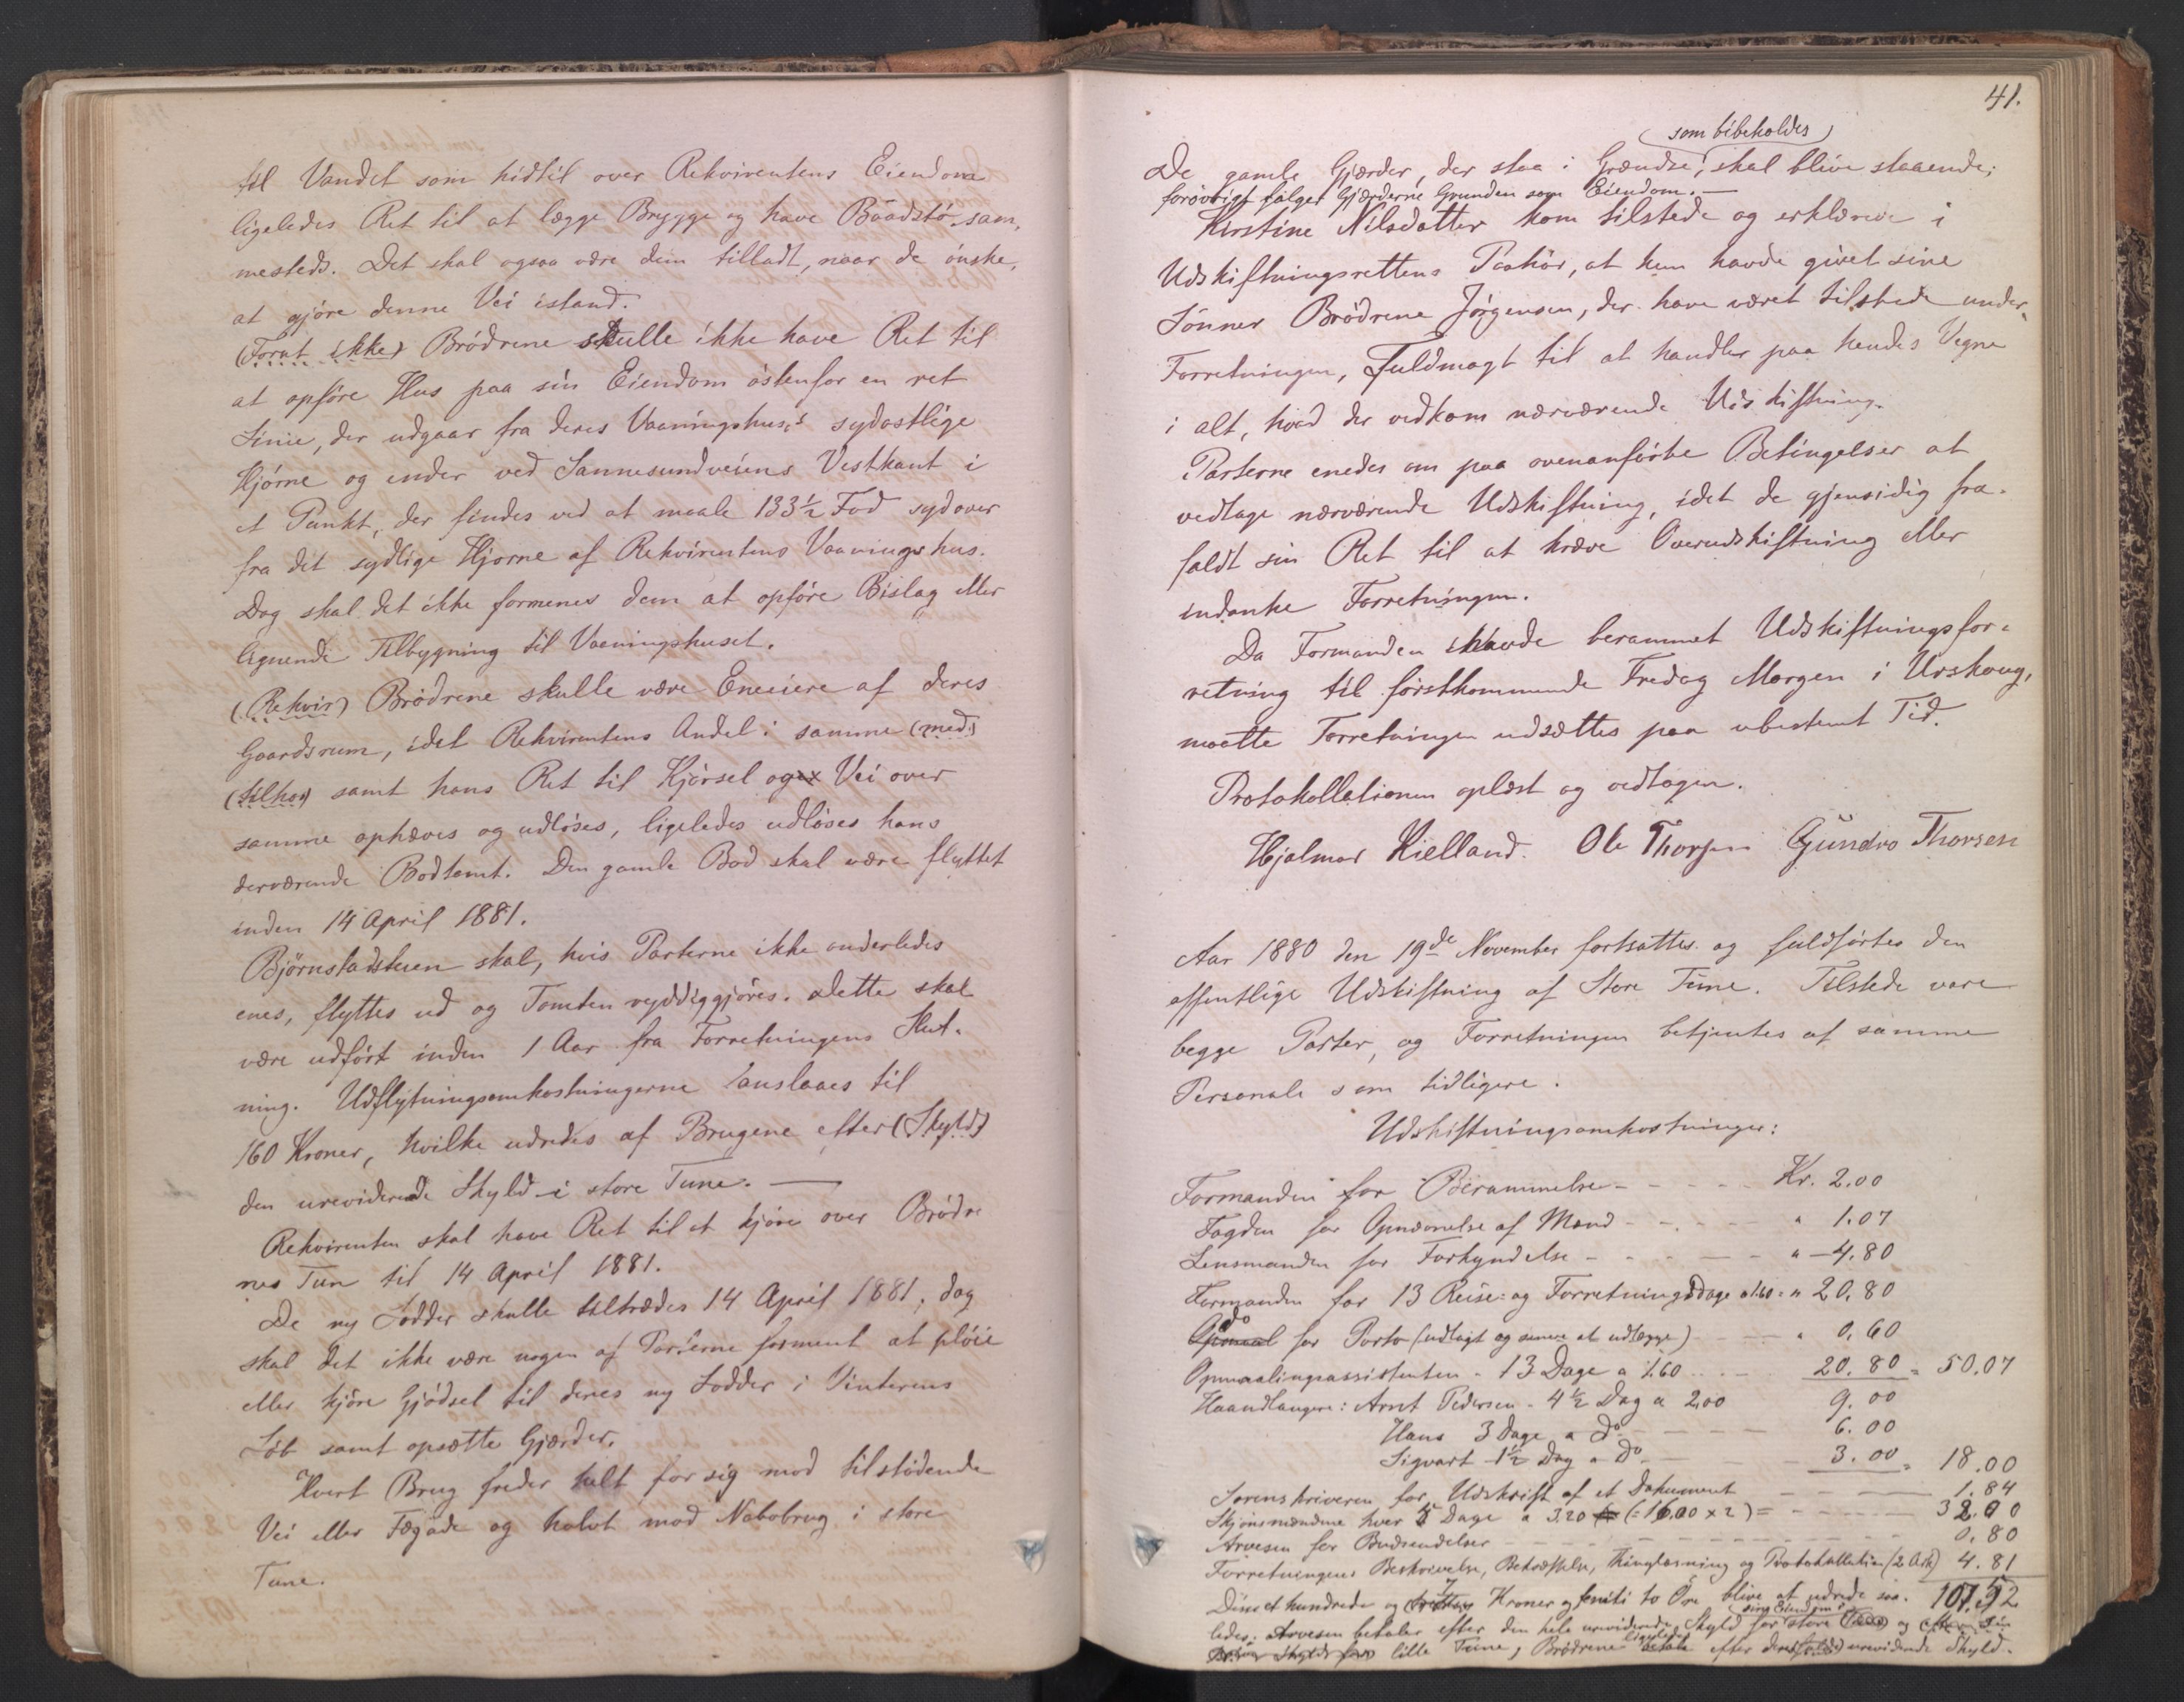 til Vandet som hidtil over Rekvirentens Eiendom
ligeledes Ret til at lægge Brygge og have Baadstø sam-
mesteds. Det skal ogsaa være dem tilladt, naar de ønske,
at gjøre denne Vei istand.
(Forat ikke) Brødrene skulle ikke have Ret til
at opføre Hus paa sin Eiendom østenfor en ret
Linie, der udgaar fra deres Vaaningshuses sydostlige
Hjørne og ender ved Sannesundveiens Vestkant i
et Punkt, der findes ved at maale 133½ Fod sydover
fra det sydlige Hjørne af Rekvirentens Vaaningshus.
Dog skal det ikke formenes dem at opføre Bislag eller
lignende Tilbygning til Vaaningshuset.
(Rekvir) Brødrene skulle være Eneeiere af deres
Gaardsrum, idet Rekvirentens Andel i samme (med)
(tilhør) samt hans Ret til Kjørsel og Vei over
samme ophæves og udløses, ligeledes udløses hans
derværende Bodtomt. Den gamle Bod skal være flyttet
inden 14 April 1881.
Bjørnstadstuen skal, hvis Parterne ikke anderledes
enes, flyttes ud og Tomten ryddiggjøres. Dette skal
være udført inden 1 Aar fra Forretningens Slut-
ning. Udflytningsomkostningerne anslaaes til
160 Kroner, hvilke udredes af Brugene efter (Skyld)
den ureviderede Skyld i store Tune. —
Rekvirenten skal have Ret til at kjøre over Brødre
nes Tun til 14 April 1881.
De ny Lodder skulle tiltrædes 14 April 1881, dog
skal det ikke være nogen af Parterne forment at pløie
eller kjøre Gjødsel til deres ny Lodder i Vinterens
Løb samt opsætte Gjærder.
Hvert Brug freder helt for sig mod tilstødende
Vei eller Fægade og halvt mod Nabobrug i store
Tune.
41.
som bibeholdes
De gamle Gjærder, der staa i Grændse, skal blive staaende;
forøvrigt følger Gjærderne Grunden som Eiendom. —
Kirstine Nilsdatter kom tilstede og erklærede i
Udskiftningsrettens Paahør, at hun havde givet sine
Sønner Brødrene Jørgensen, der have været tilstede under
Forretningen, Fuldmagt til at handle paa hendes Vegne
i alt, hvad der vedkom nærværende Udskiftning.
Parterne enedes om paa ovenanførte Betingelser at
vedtage nærværende Udskiftning, idet de gjensidig fra-
faldt sin Ret til at kræve Overudskiftning eller
indanke Forretningen.
Da Formanden havde berammet Udskiftningsfor-
retning til førstkommende Fredag Morgen i Urskoug,
maatte Forretningen udsættes paa ubestemt Tid.
Protokollationen oplæst og vedtagen.
Hjalmar Kielland. Ole Thorsen Gundro Thorsen
Aar 1880 den 19de November fortsattes og fuldførtes den
offentlige Udskiftning af Store Tune. Tilstede vare
begge Parter, og Forretningen betjentes af samme
Personale som tidligere.
Udskiftningsomkostninger:
Formanden for Berammelse - - - - - Kr. 2.00
Fogden for Opnævnelse af Mænd - - - - - " 1.07
Lensmanden for Forkyndelse - - - - - " 4.80
Formanden for 13 Reise- og Forretningsdage a 1.60 = " 20.80
do for Porto (udlagt og senere at udlægge) - - " 0.60
Opmaalingsassistenten - 13 Dage a 1.60 - - 20.80 = 50.07
Haandlangere: Arnt Pedersen - 4½ Dag a 2.00 9.00
Hans 3 Dage a do - - - - - 6.00
Sigvart 1½ Dag a do - - - - 3.00 = 18.00
Sorenskriveren for Udskrift af et Dokument - - - - 1.84
Skjønsmændene hver 5 Dage a 3.20 (= 16.00 x 2) = - - - - 32.00
Arvesen for Budsendelser - - - - - 0.80
Forretningens Beskrivelse, Bekræftelse, Thinglæsning og Protokollation (2 Ark) 4.81
107.52
Disse et hundrede og 7 Kroner og femti to Øre blive at udrede saa-
ledes: Arvesen betaler efter den hele ureviderede Skyld for sin Eiendom i store Tune og
lille Tune, Brødrene ligeledes efter deres ureviderede Skyld.